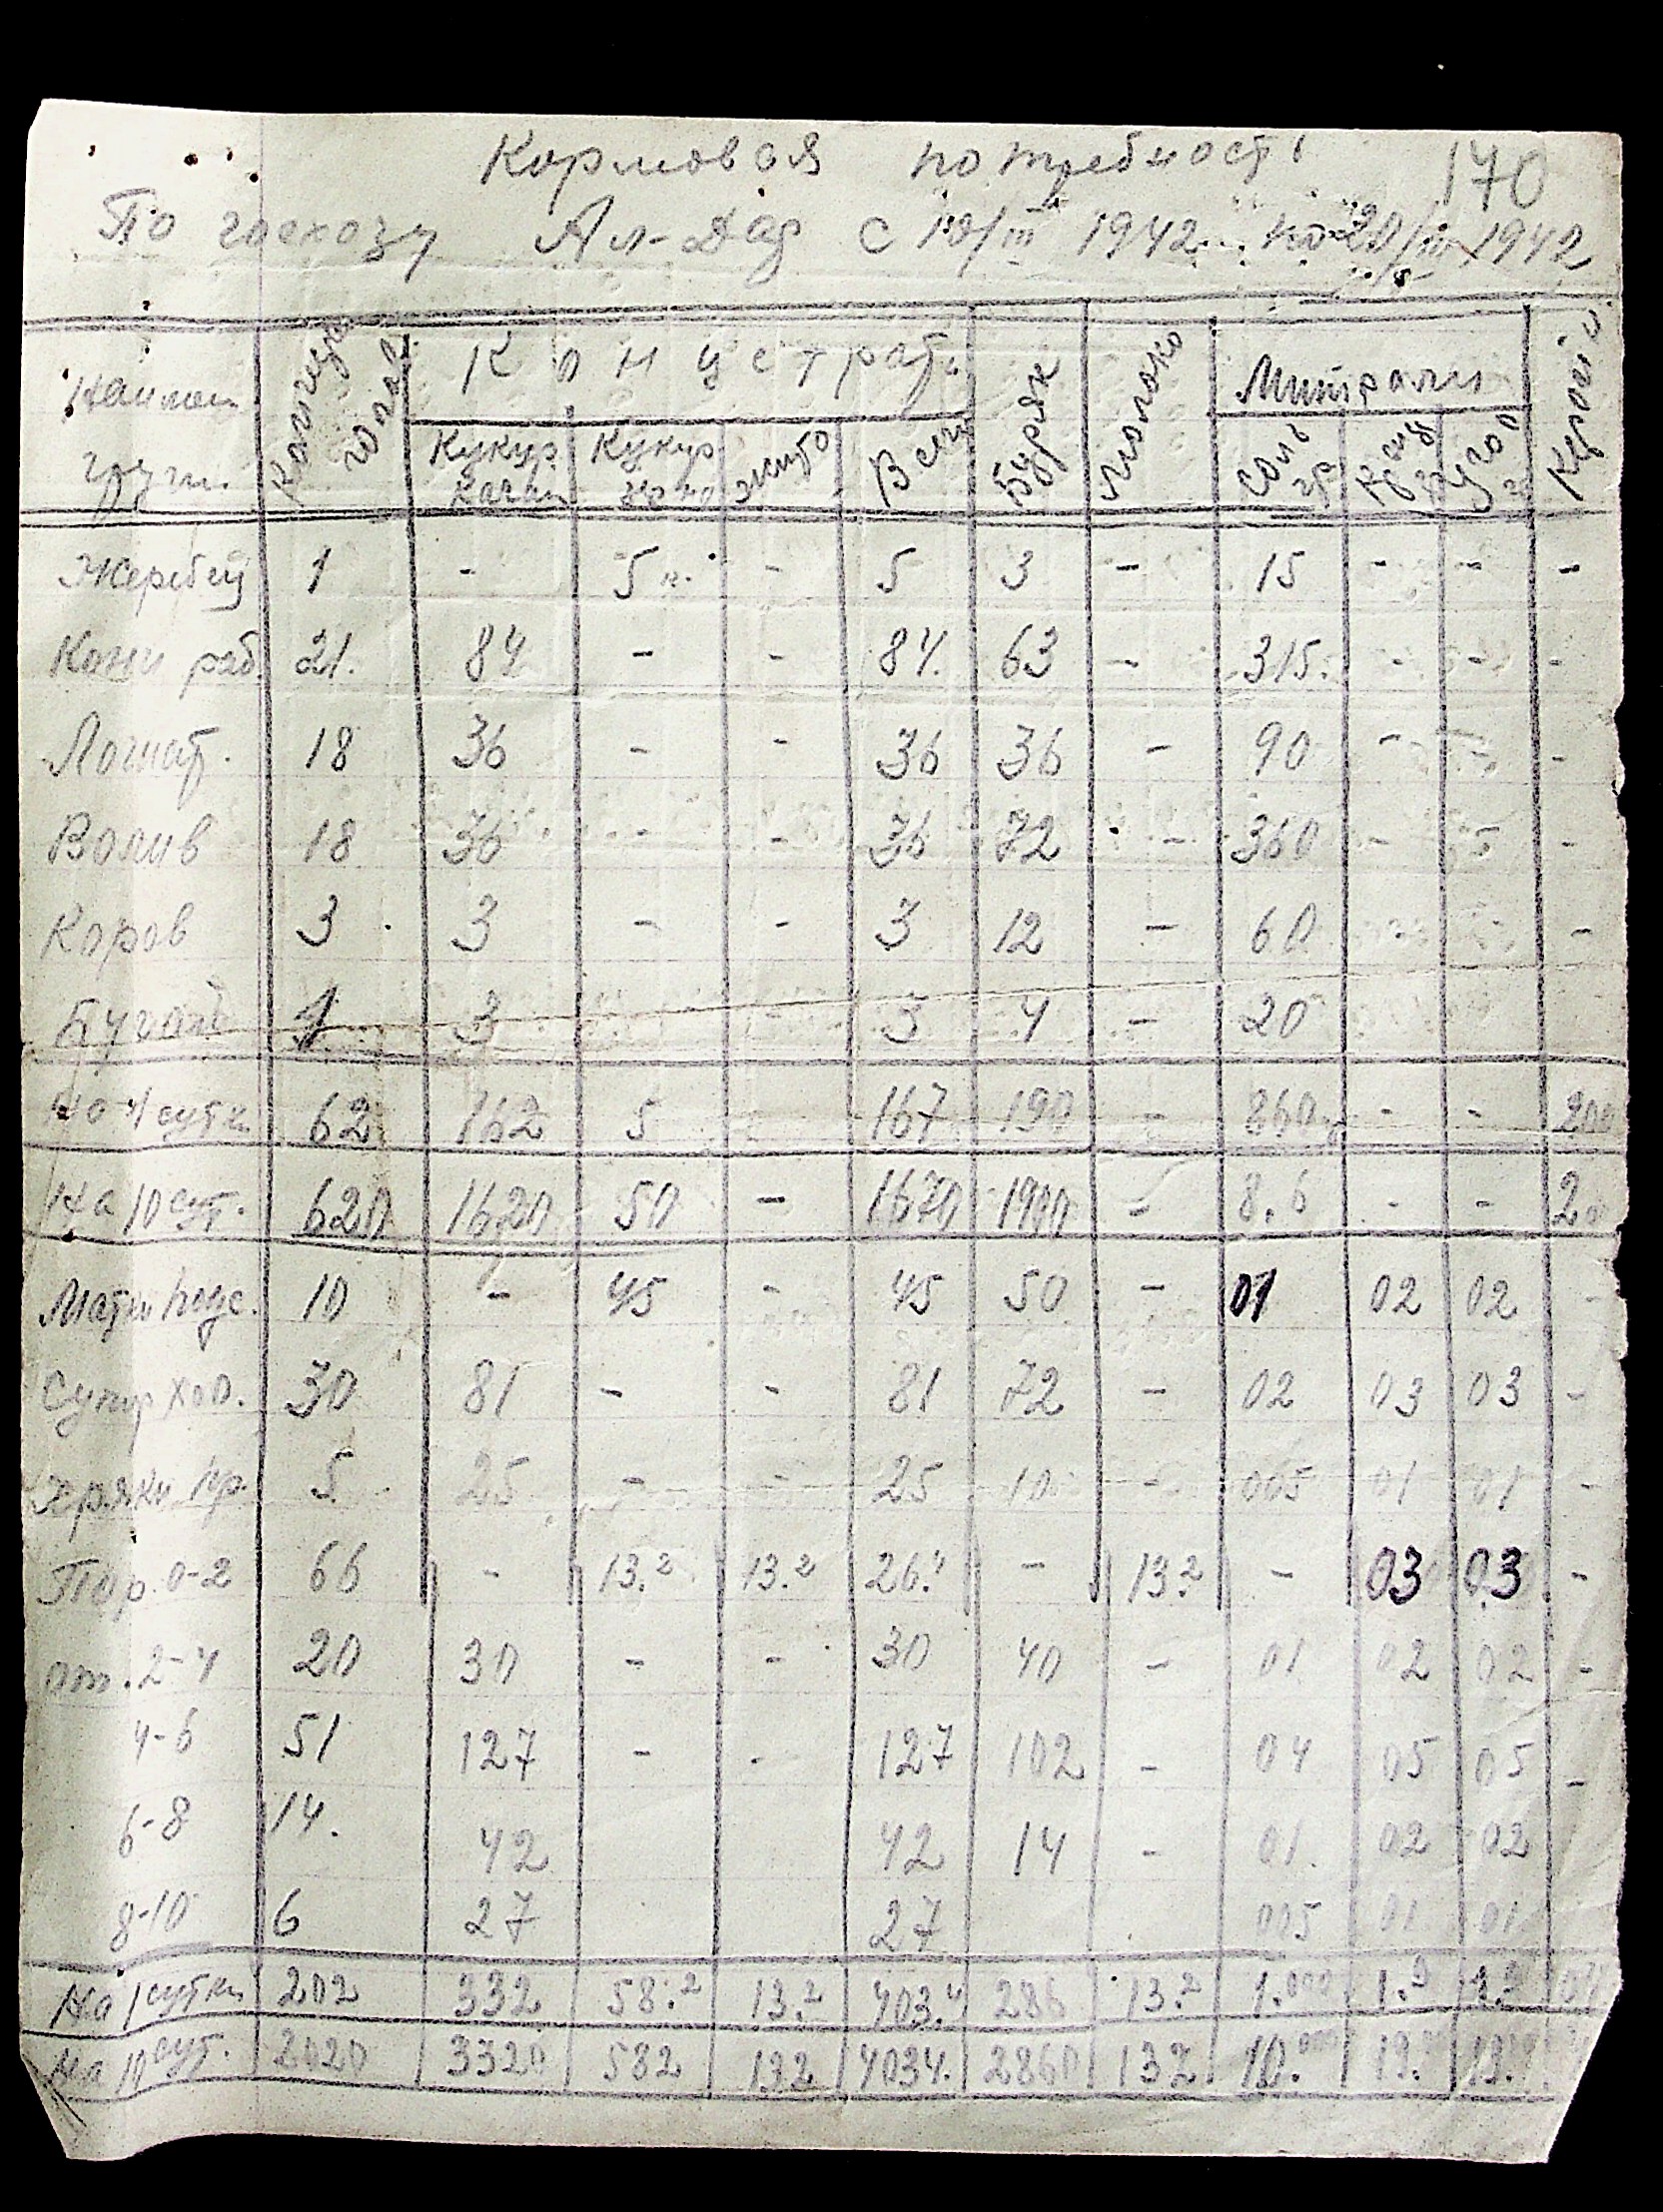 Кормовая потребность
170
По госхозу Ал-Дар с 10/III 1942 по 20/III 1942
Наимен. групп.
Количество голов
Концетраты
Буряк
Молоко
Минрали
Кукур. качан
Кукур. зерно
жито
Всего
Соль гр
Жеребец 1 - 5 к. - 5 3 - 15 - - -
Кони раб. 21. 84 - - 84. 63 - 315. - - -
Лошат. 18 36 - - 36 36 - 90 - - -
Волив 18 36 - - 36 72 - 360 - - -
Коров 3 3 - - 3 12 - 60 - - -
Бугай 1 3 - 3 4 - 20
На 1 сутки 62 162 5 - 167 190 - 860 - - 200
На 10 сут. 620 1620 50 - 1670 1900 - 8.6 - - 2
Матки 10 - 45 - 45 50 - 01 02 02 -
Супор хол. 30 81 - - 81 72 - 02 03 03 -
Хряки 5 25 - - 25 10 - 005 01 01 -
Пор. 0-2 66 - 13.2 13.2 26.4 - 13.2 - 03 03 -
от. 2-4 20 30 - - 30 40 - 01 02 02 -
4-6 51 127 - - 127 102 - 04 05 05 -
6-8 14. 42 42 14 - 01. 02 02
8-10 6 27 27 005 01 01
На 1 сутки 202 332 58.2 13.2 403.4 286 13.2 1.000 1.9 1.9
На 10 сут. 2020 3320 582 132 4034. 2860 132 10.000 19. 19.